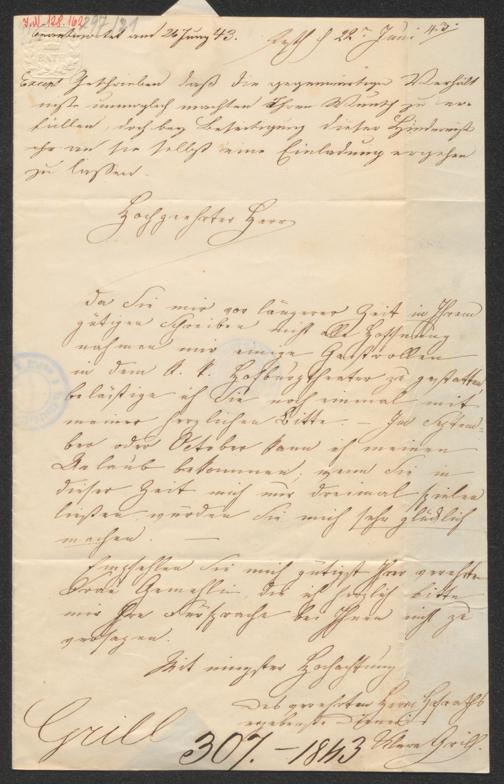 I.N. 128.162
297/21
beantwortet am 26 Juny 43.
Pesth d 22n Juni 43.
BATH
Geschrieben daß die gegenwärtigen Verhält
nisse unmöglich machten Ihren Wunsch zu er
füllen, doch bey Beseitigung dieser Hinderniße
an sie selbst eine Einladung ergehen
zu lassen.
Hochgeehrter Herr
Da Sie mir vor längerer Zeit in Ihrem
gütigen Schreiben nicht alle Hoffnung
nahmen mir einige Gastrollen
in dem k. k. Hofburgtheater zu gestatten
belästige ich Sie noch einmal mit
meiner herzlichen Bitte. — Im Septem-
ber oder October kann ich meinen
Urlaub bekommen; wenn Sie in
dieser Zeit mich nur dreimal spielen
ließen, würden Sie mich sehr glücklich
machen. —
Empfehlen Sie mich gütigst Ihrer verehrten
Frau Gemahlin, die ich herzlich bitte
mir Ihre Fürsprache bei Ihnen nicht zu
versagen.
Mit innigster Hochachtung
Des geehrten Herrn Hofraths
ergebenste Dienerin
Grill
307. – 1843
Clara Grill.